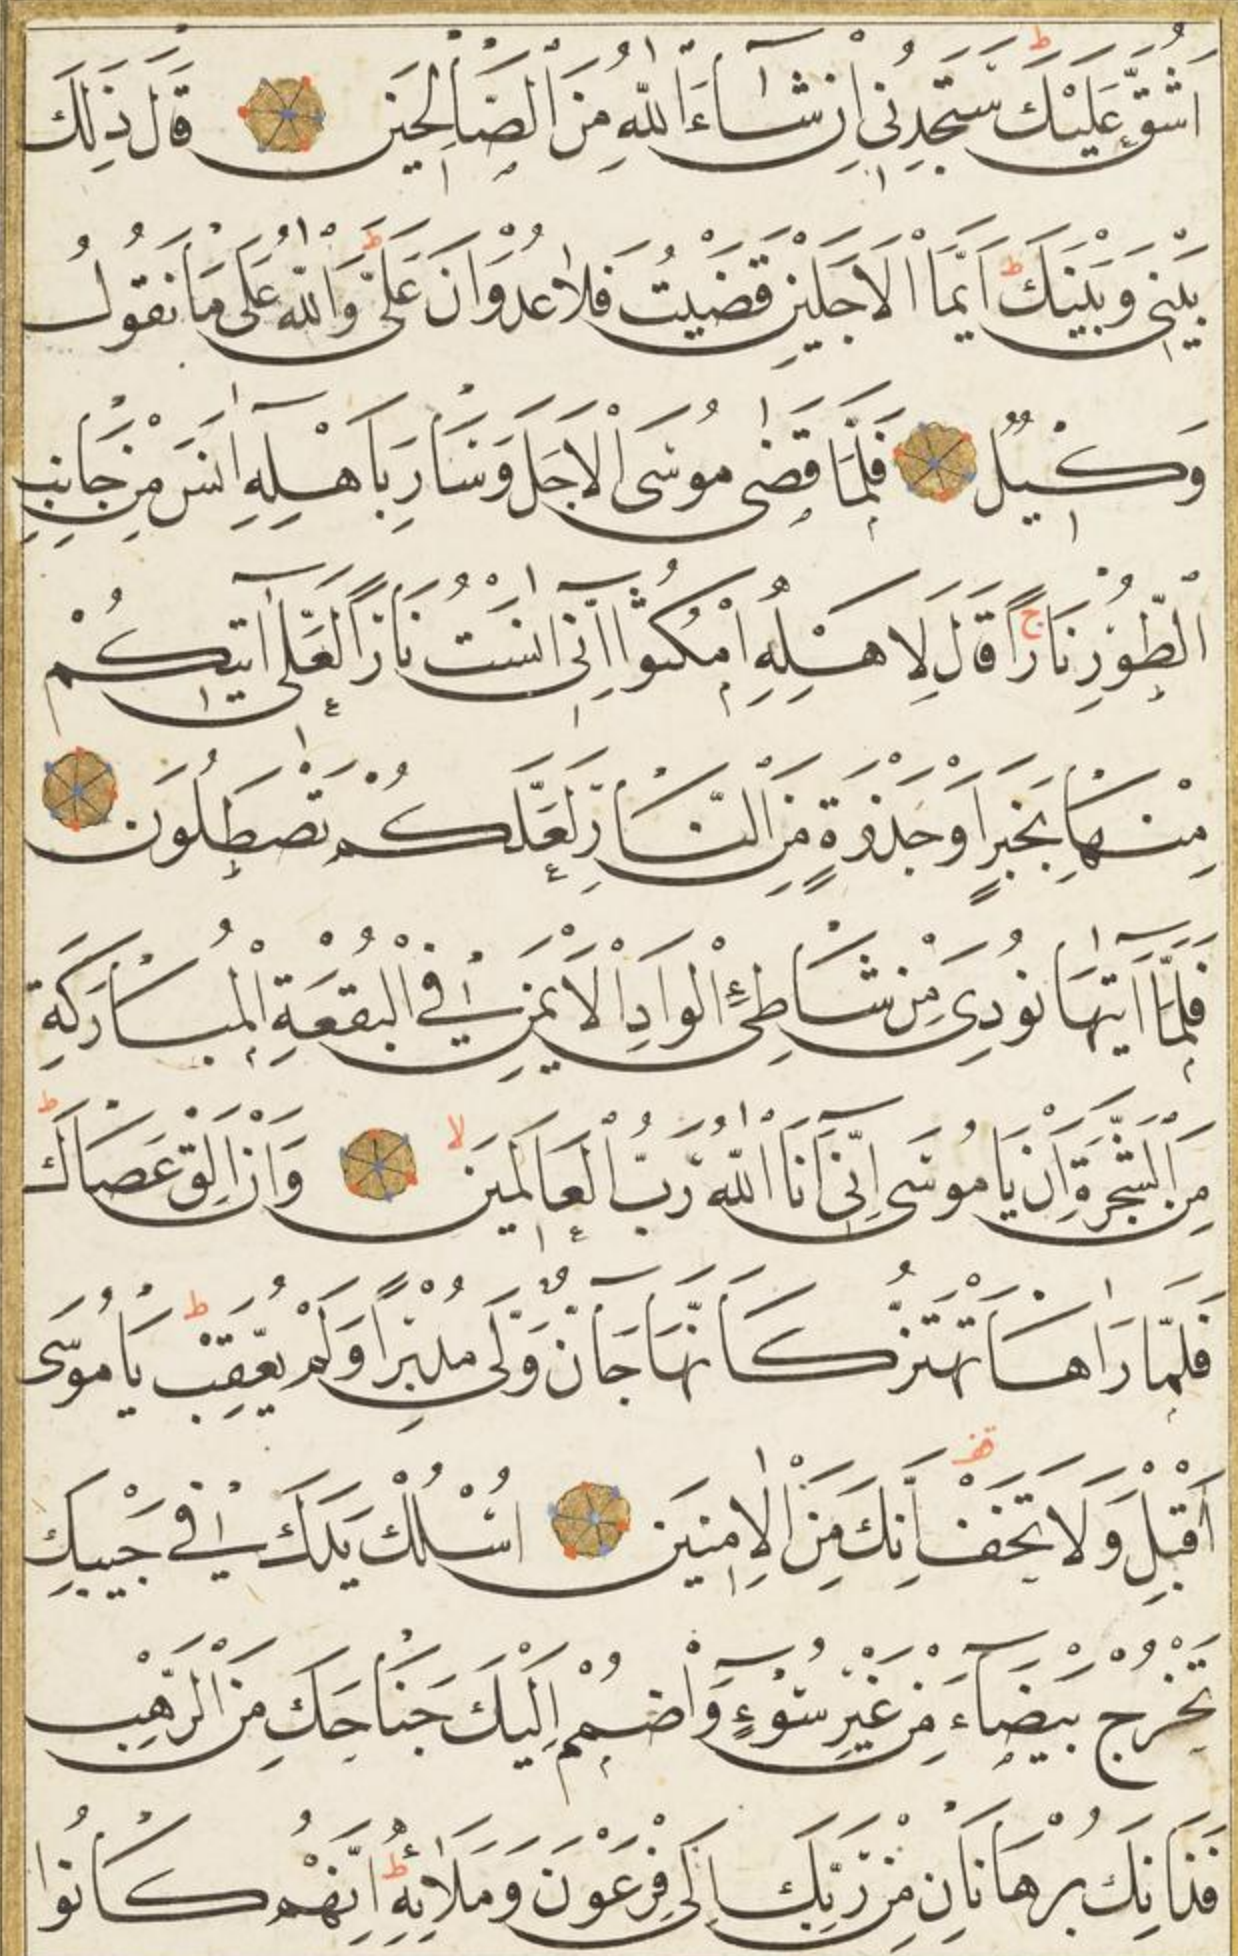 اَشُقَّ عَلَيْكَ ۜ سَتَجِدُنِي اِنْ شَآءَ اللّٰهُ مِنَ الصَّالِحِينَ قَالَ ذٰلِكَ
بَيْنِي وَبَيْنَكَ ط اَيَّمَا الْاَجَلَيْنِ قَضَيْتُ فَلَا عُدْوَانَ عَلَيَّ ط وَاللّٰهُ عَلٰى مَا نَقُولُ
وَكِيلٌ فَلَمَّا قَضٰى مُوسَى الْاَجَلَ وَسَارَ بِاَهْلِهِ اٰنَسَ مِنْ جَانِبِ
الطُّورِ نَارًا ج قَالَ لِاَهْلِهِ امْكُثُوٓا اِنِّىٓ اٰنَسْتُ نَارًا لَعَلِّىٓ اٰتِيكُمْ
مِنْهَا بِخَبَرٍ اَوْ جَذْوَةٍ مِنَ النَّارِ لَعَلَّكُمْ تَصْطَلُونَ
فَلَمَّآ اَتٰيهَا نُودِىَ مِنْ شَاطِئِ الْوَادِ الْاَيْمَنِ فِي الْبُقْعَةِ الْمُبَارَكَةِ
مِنَ الشَّجَرَةِ اَنْ يَا مُوسٰٓى اِنِّىٓ اَنَا اللّٰهُ رَبُّ الْعَالَمِينَ لا وَاَنْ اَلْقِ عَصَاكَ ط
فَلَمَّا رَاٰهَا تَهْتَزُّ كَاَنَّهَا جَآنٌّ وَلّٰى مُدْبِرًا وَلَمْ يُعَقِّبْ ط يَا مُوسٰٓى
اَقْبِلْ وَلَا تَخَفْ قف اِنَّكَ مِنَ الْاٰمِنِينَ اُسْلُكْ يَدَكَ فِي جَيْبِكَ
تَخْرُجْ بَيْضَآءَ مِنْ غَيْرِ سُوٓءٍ وَاضْمُمْ اِلَيْكَ جَنَاحَكَ مِنَ الرَّهْبِ
فَذَانِكَ بُرْهَانَانِ مِنْ رَبِّكَ اِلٰى فِرْعَوْنَ وَمَلَا۬ئِهِ ط اِنَّهُمْ كَانُوا